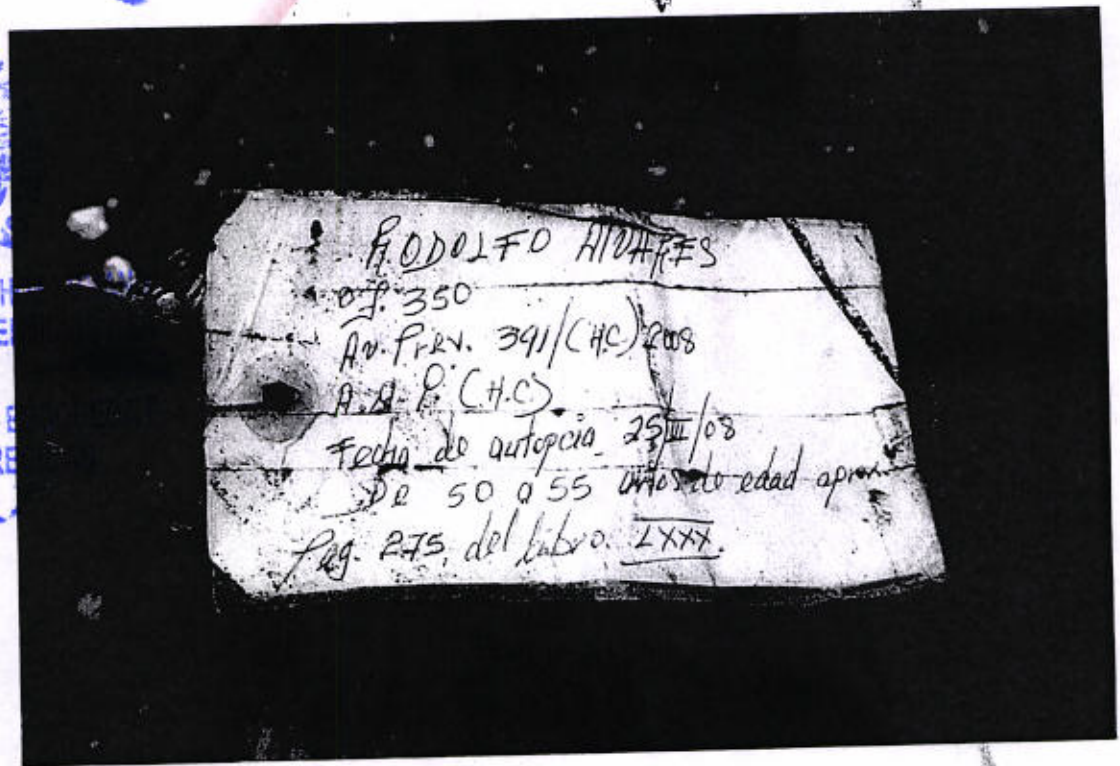 RODOLFO ALVARES
Of. 350
Av. Prev. 391/(H.C) 2008
A.M.P. (H.C)
Fecha de autopcia 25/III/08
De 50 a 55 años de edad aprox
Pag. 275, del Libro. LXXX.